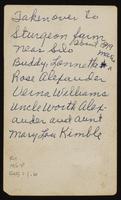 Taken over to
Sturgeon farm
near Silo about 1919
Buddy, Lonneth
Rose Alexander
Verna Williams
Uncle Worth Alex-
ander and aunt
Mary Lou Kimble